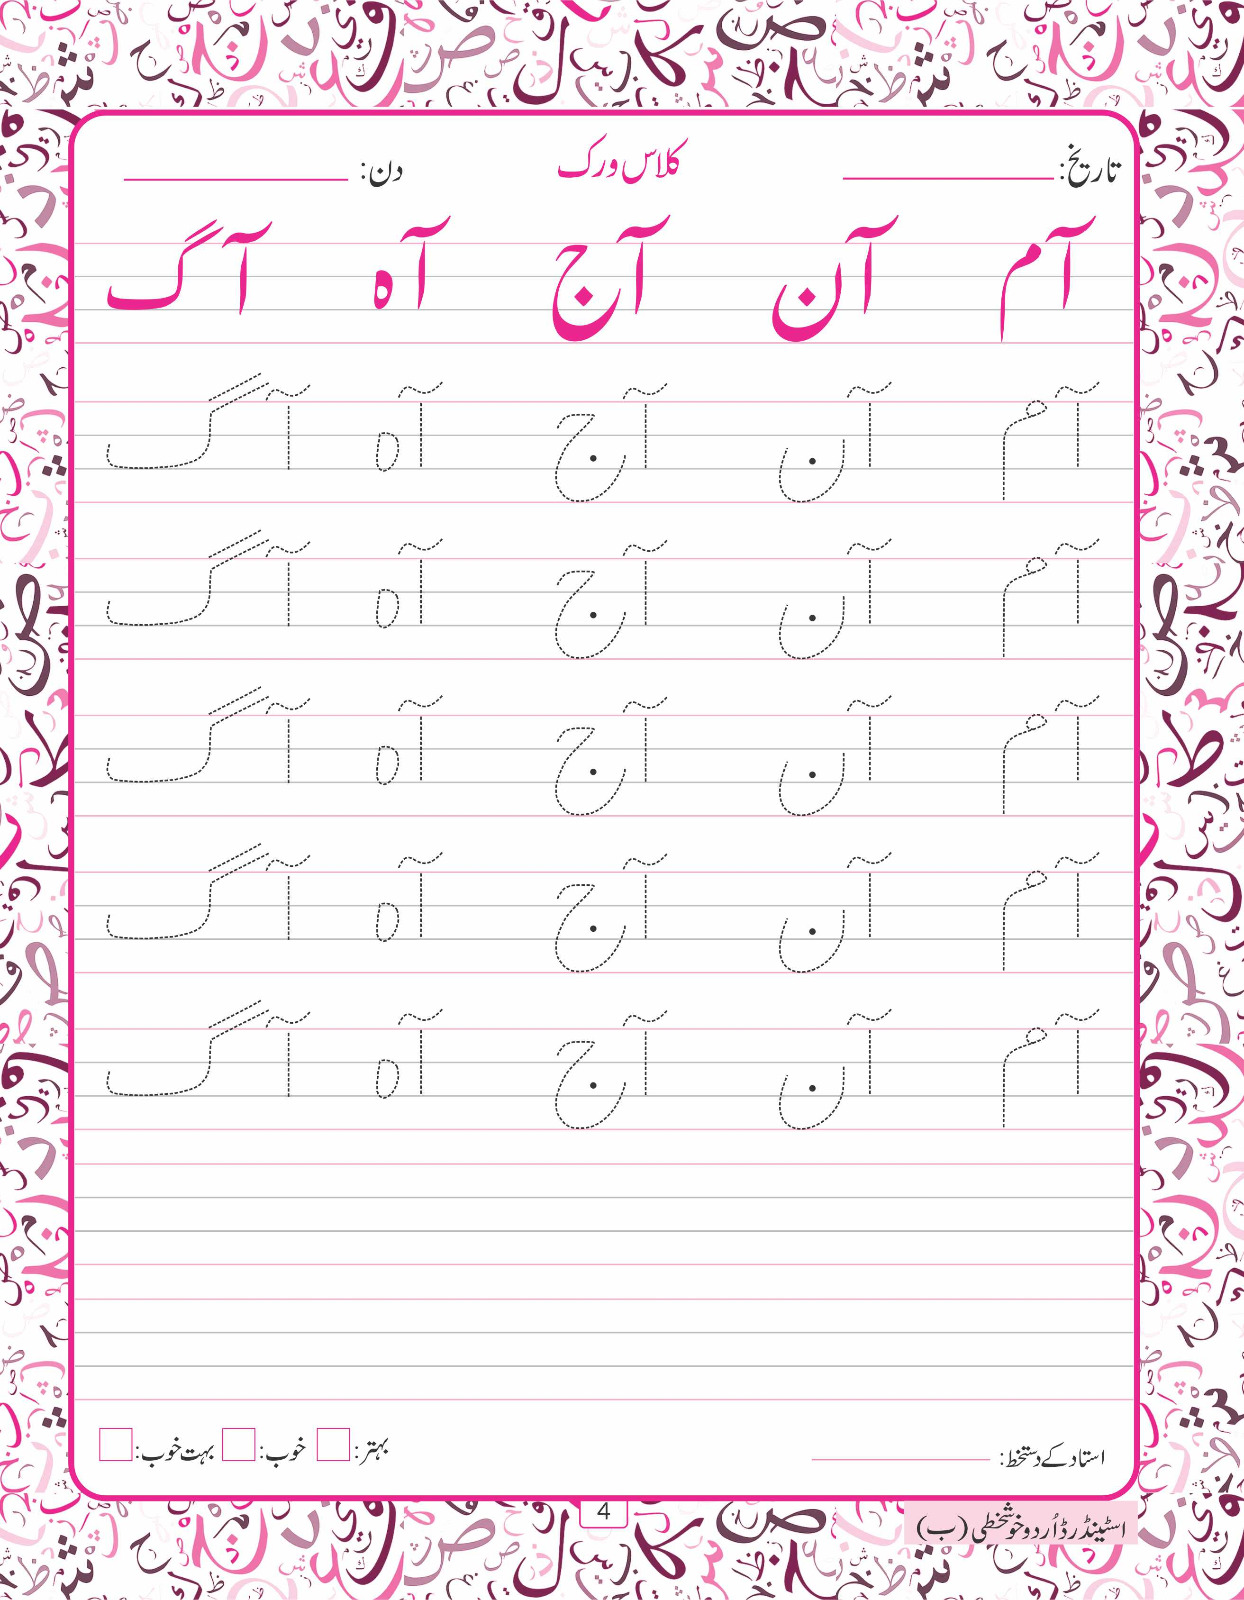 تاریخ: کلاس ورک دن:
آم آن آج آہ آگ
آم آن آج آہ آگ
آم آن آج آہ آگ
آم آن آج آہ آگ
آم آن آج آہ آگ
آم آن آج آہ آگ
استاد کے دستخط: بہتر: خوب: بہت خوب:
4
اسٹینڈرڈ اُردو خوشخطی (ب)